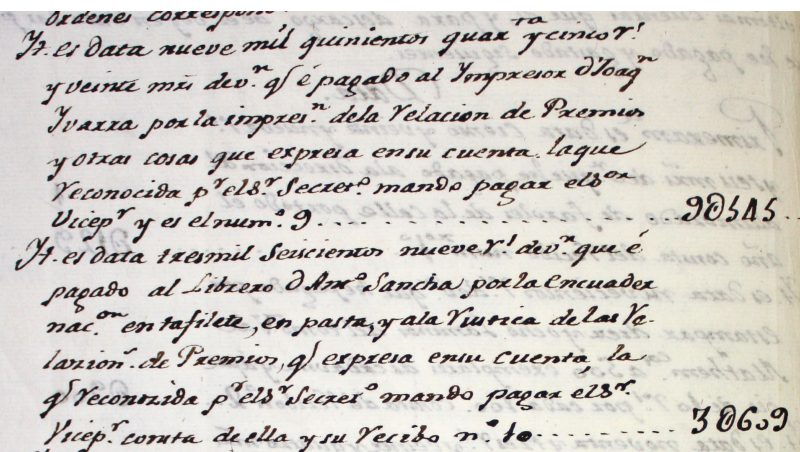 ordenes correspon
Yt. es data nueve mil quinientos quarta y cinco rs
y veinte mrs de vn. q̃ é pagado al Ympresor Dn Joaqn
Yvarra por la impresn. dela Relacion de Premios
y otras cosas que expresa en su cuenta, la que
Reconocida pr. elsr. Secreto. mando pagar elsor
Vicepr. y es el numo. 9 . . . . . . . . . . . . . . . . . 9D545 . .
Yt. es data tresmil Seiscientos nueve rs. de vn. que é
pagado al Librero Dn Anto. Sancha por la Encuader
nacon. en tafilete, en pasta, y ala Rustica de las Re-
lazion. de Premios, q̃ expresa ensu cuenta, la
q̃ Reconozida pr. elsr. Secreto. mando pagar elsr.
Vicepr. consta de ella y su Recibo no. 10 . . . . . . . . . 3D609